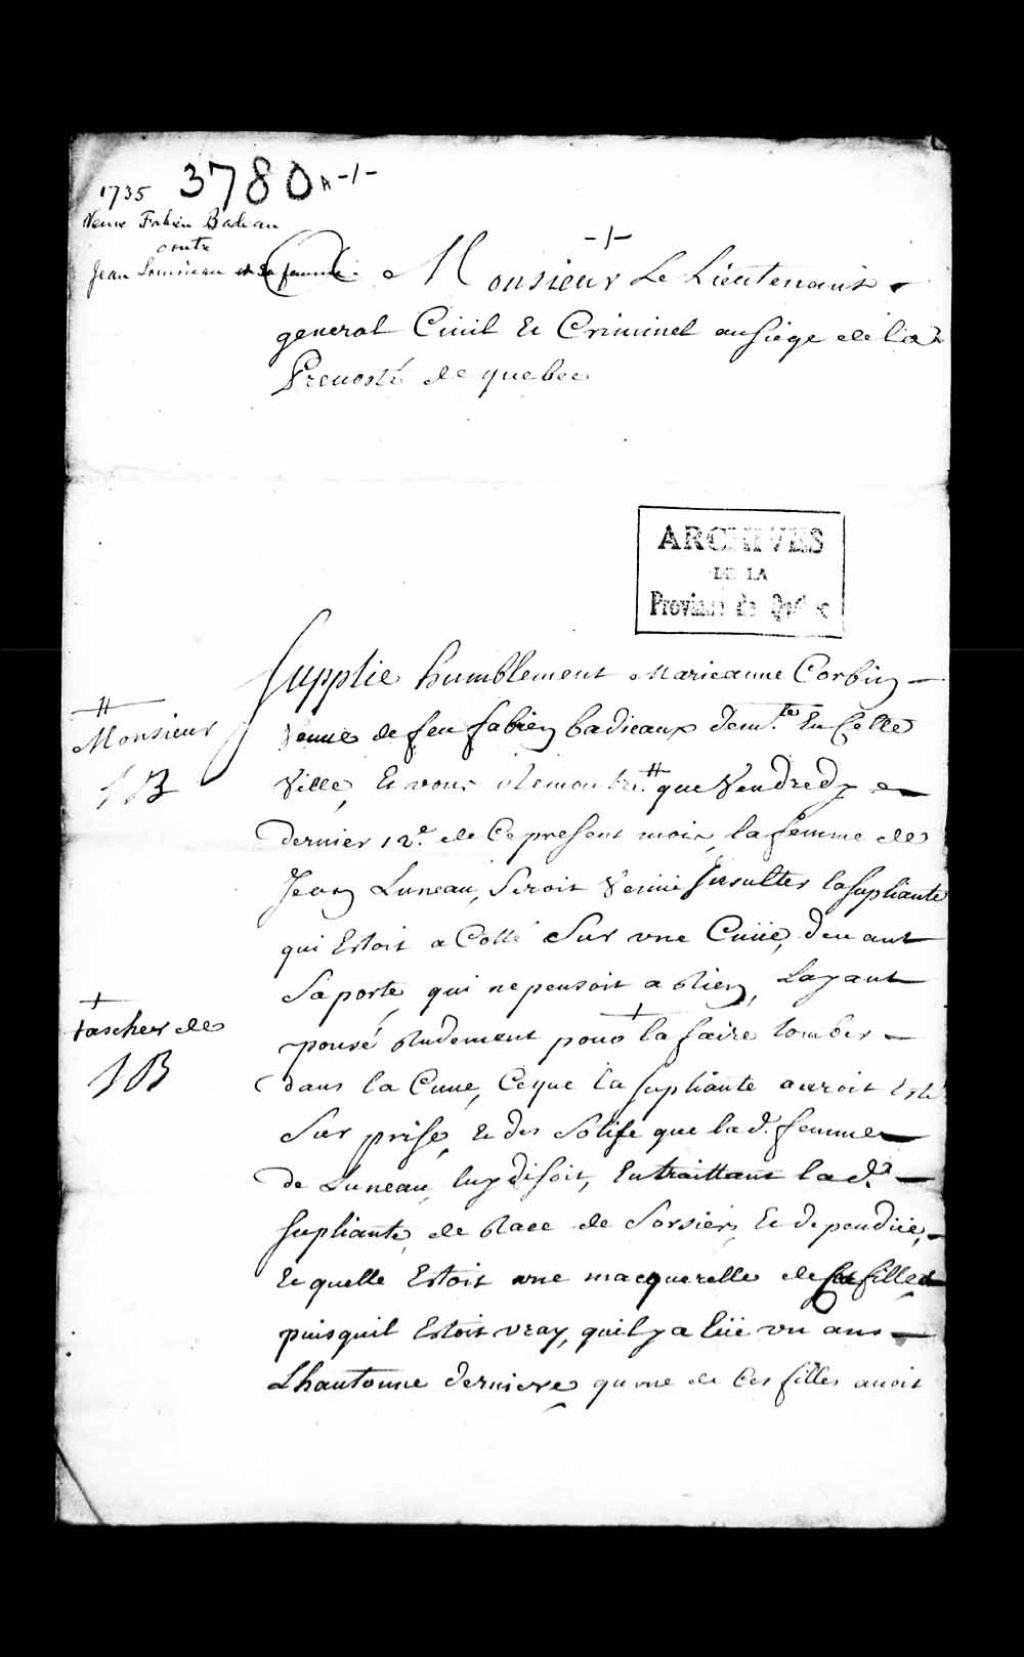 1735 3780 A-1-
Veuve Fabien Badeau
contre
Jean Louineau et sa femme.
-1-
A Monsieur Le Lieutenant
general Ciuil Et Criminel au siege de la
Preuosté de quebec
ARCHIVES
DE LA
Province de Québec
Supplie humblement Marieanne Corbin
veuue de feu fabien badieaux dem.te En Cette
Ville, Et vous remontre # que Vendredy
dernier 12e. de Ce present mois, la femme de
Jean Luneau, Seroit venue Insulter la supliante
qui Estoit a Costé Sur vne Cuue, deuant
Sa porte, qui ne pensoit a Rien, Layant
poussé Rudement pour + la faire tomber
dans la Cuue, Ceque la supliante auroit Esté
Surprise, Et des Sotise que lad. femme
de Luneau, luy disoit, En traittant lad.e
supliante, de Race de Sorsier, Et de pendüe,
Et quelle Estoit vne macquerelle de ses filles
puisquil Estoit vray, quil y a Eüe vn ans
Lhautonne derniere, qu vne de Ces filles auoit
#
Monsieur
JB
+
tascher de
JB